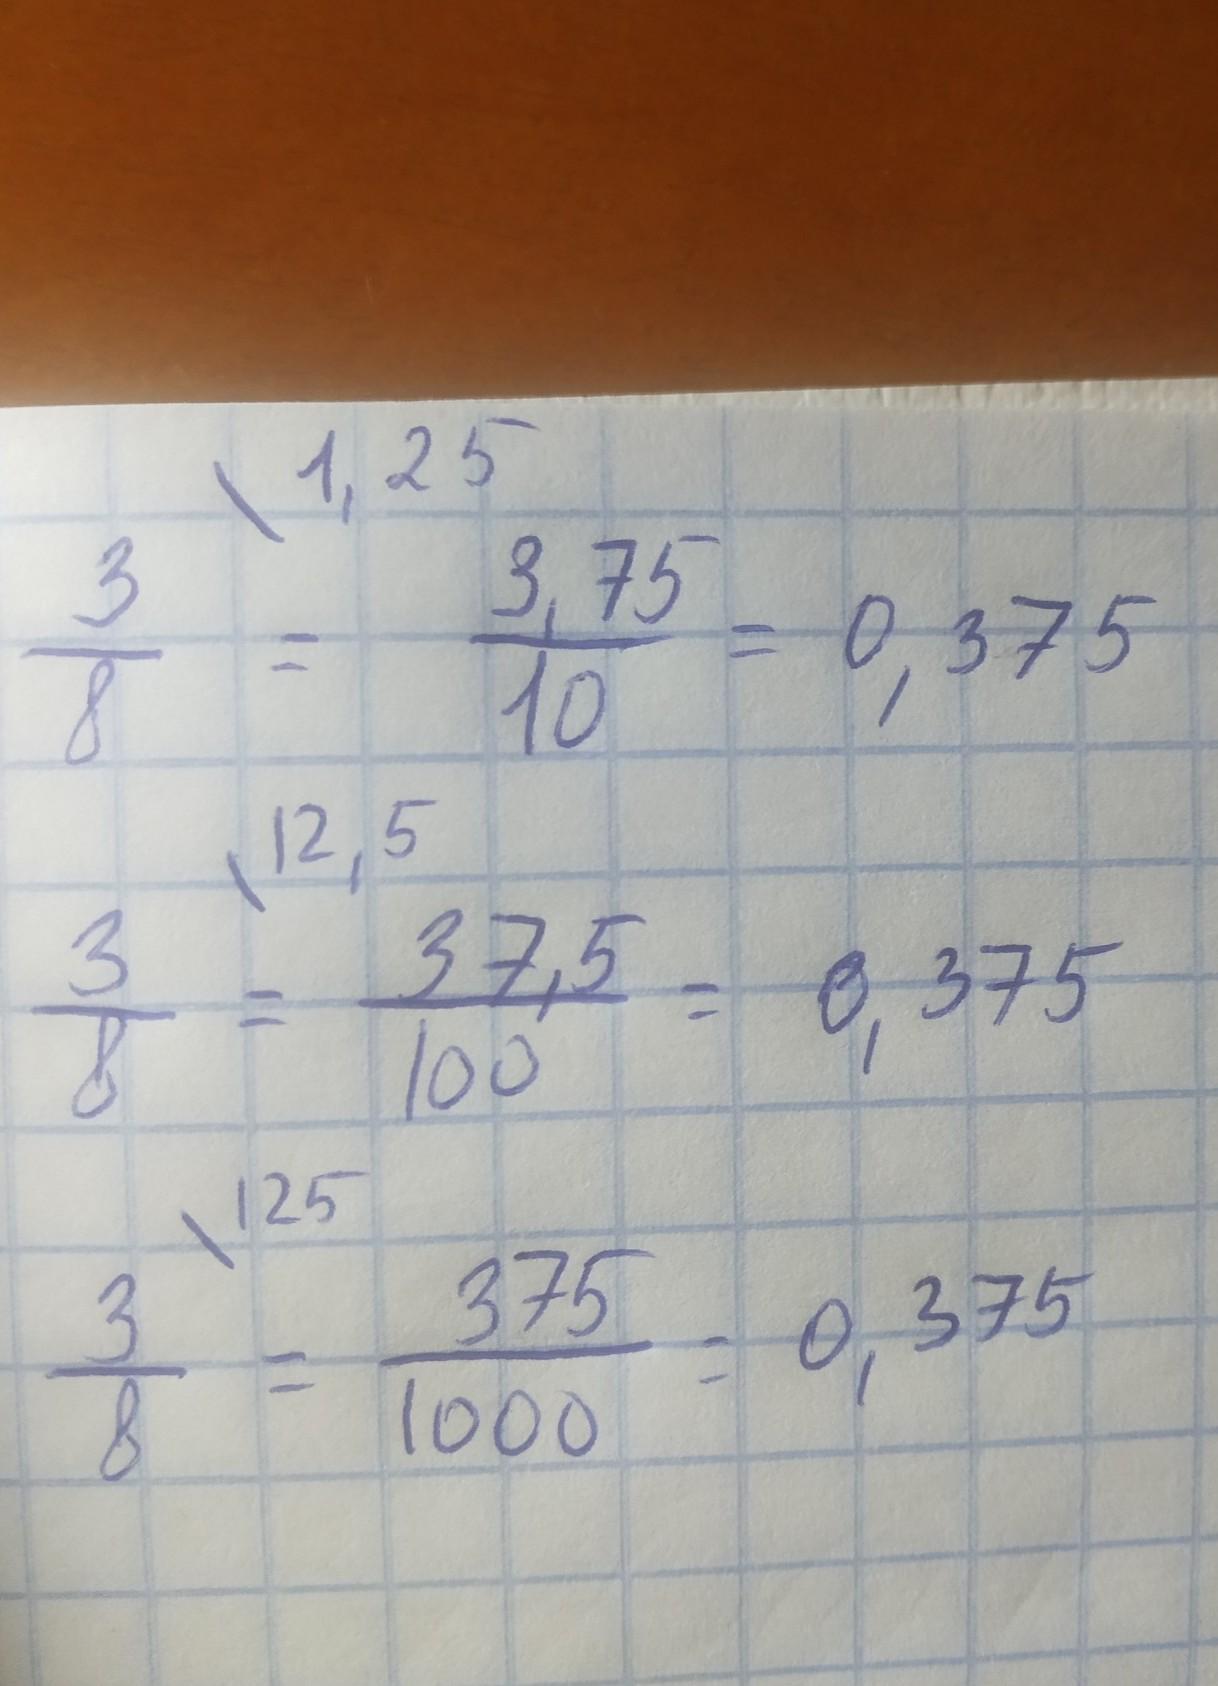 \1,25
3/8 = 3,75/10 = 0,375
\12,5
3/8 = 37,5/100 = 0,375
\125
3/8 = 375/1000 = 0,375